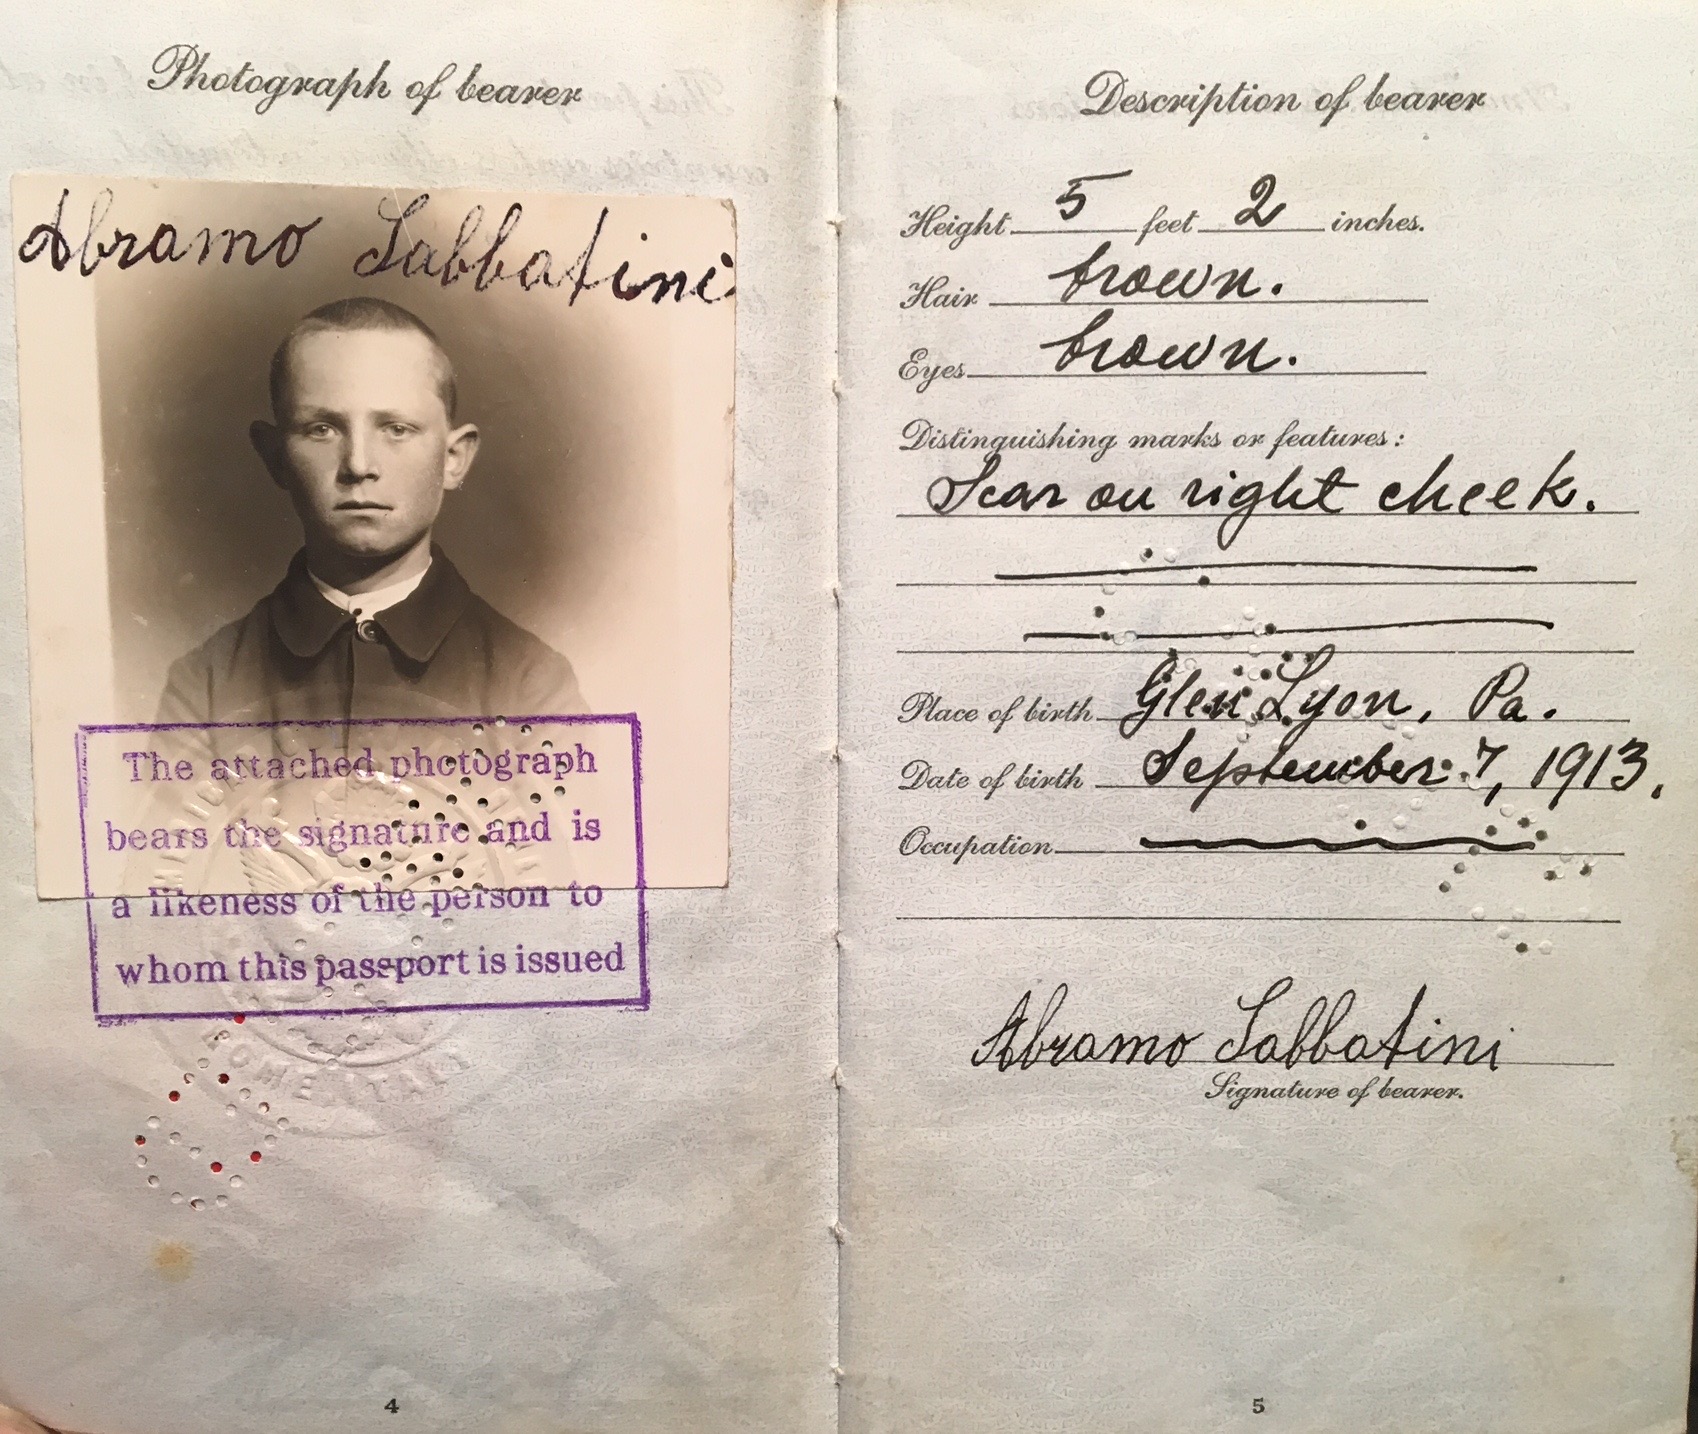 Photograph of bearer
Abramo Sabbatini
The attached photograph
bears the signature and is
a likeness of the person to
whom this passport is issued
ROME, ITALY
4
Description of bearer
Height 5 feet 2 inches.
Hair brown.
Eyes brown.
Distinguishing marks or features:
Scar on right cheek.
Place of birth Glen Lyon, Pa.
Date of birth September 7, 1913.
Occupation
Abramo Sabbatini
Signature of bearer.
5